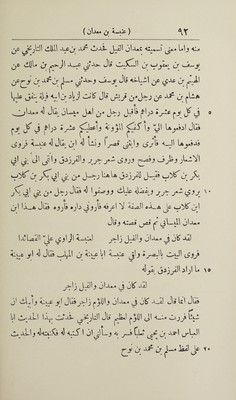 ٩٢ ﴿ عنبسة بن معدان ﴾
منه واما معنى تسميته بمعدان الفيل فحدث محمد بن عبد الملك التاريخي عن
يوسف بن يعقوب بن السكيت قال حدثني عبد الرحيم بن مالك عن
الهيثم بن عدي عن اشياخه قال يوسف وحدثني مسلم بن محمد بن نوح عن
هشام بن محمد عن رجل من قريش قال كانت لزياد بن ابيه فيلة ينفق عليها
في كل يوم عشرة دراهم فأقبل رجل من اهل ميسان يقال له معدان
فقال ادفعوها اليّ واكفيكم المؤونة وأعطيكم عشرة دراهم في كل يوم
فدفعوها اليه فأثرى وابتنى قصراً ونشأ له ابن يقال له عنبسة فروى
الاشعار وظرف وفصح وروى شعر جرير والفرزدق وانتمى الى بني ابي
بكر بن كلاب فقيل للفرزدق هاهنا رجل من بني ابي بكر بن كلاب
١٠ يروي شعر جرير ويفضله عليك ووصفوه له فقال رجل من بني ابي بكر
ابن كلاب على هذه الصفة لا اعرفه فأروني داره فأروه فقال هذا ابن
معدان الميساني ثم قص قصته وقال
لقد كان في معدان والفيل زاجر لعنبسة الراوي عليّ القصائدا
فروى البيت بالبصرة ولقي عنبسة ابا عيينة بن المهلب فقال له ابو عيينة
١٥ ما اراد الفرزدق بقوله
لقد كان في معدان والفيل زاجر
فقال انما قال لقد كان في معدان واللؤم زاجر فقال ابو عيينة وأبيك ان
شيئاً فررت منه الى اللؤم لعظيم قال التاريخي فحدثت بهذا الحديث ابا
العباس احمد بن يحيى ثعلباً فسر به وسألني ان اكتبه له فكتبته له والحديث
٢٠ على لفظ مسلم بن محمد بن نوح